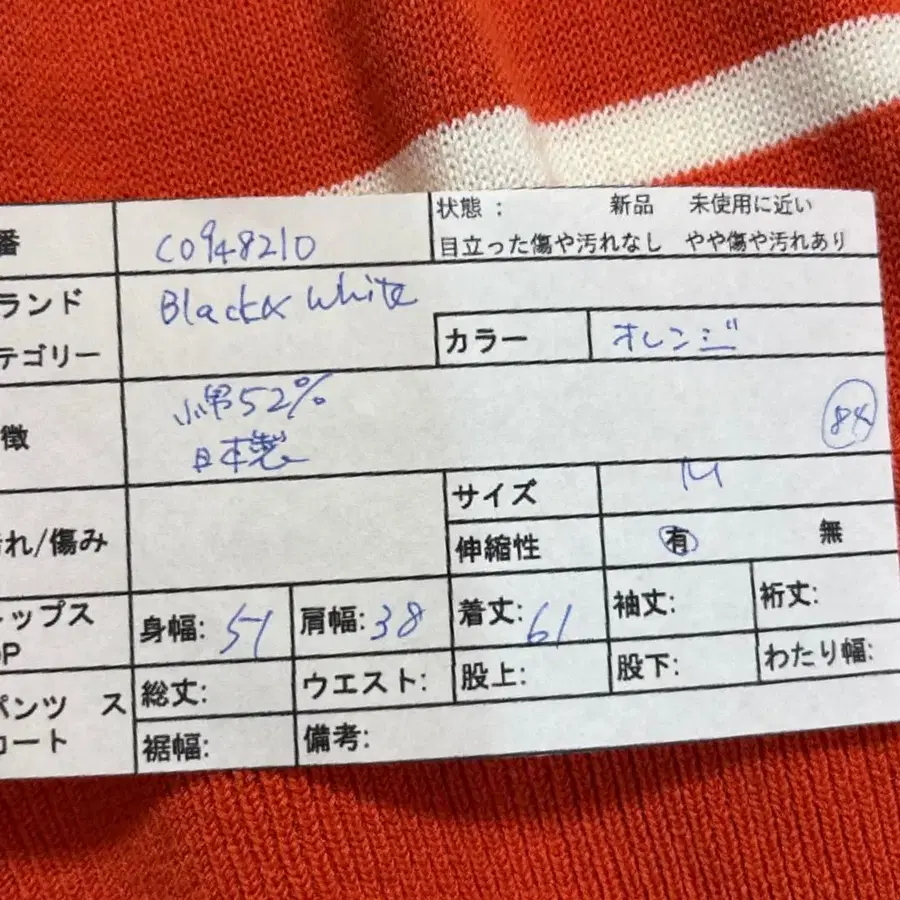 番 C0948210 状態: 新品 未使用に近い
目立った傷や汚れなし やや傷や汚れあり
ランド Black & White
テゴリー カラー オレンジ
徴 綿52%
日本製
84
サイズ M
れ/傷み 伸縮性 有 無
トップス 身幅: 51 肩幅: 38 着丈: 61 袖丈: 裄丈:
OP
パンツ ス 総丈: ウエスト: 股上: 股下: わたり幅:
カート 裾幅: 備考: